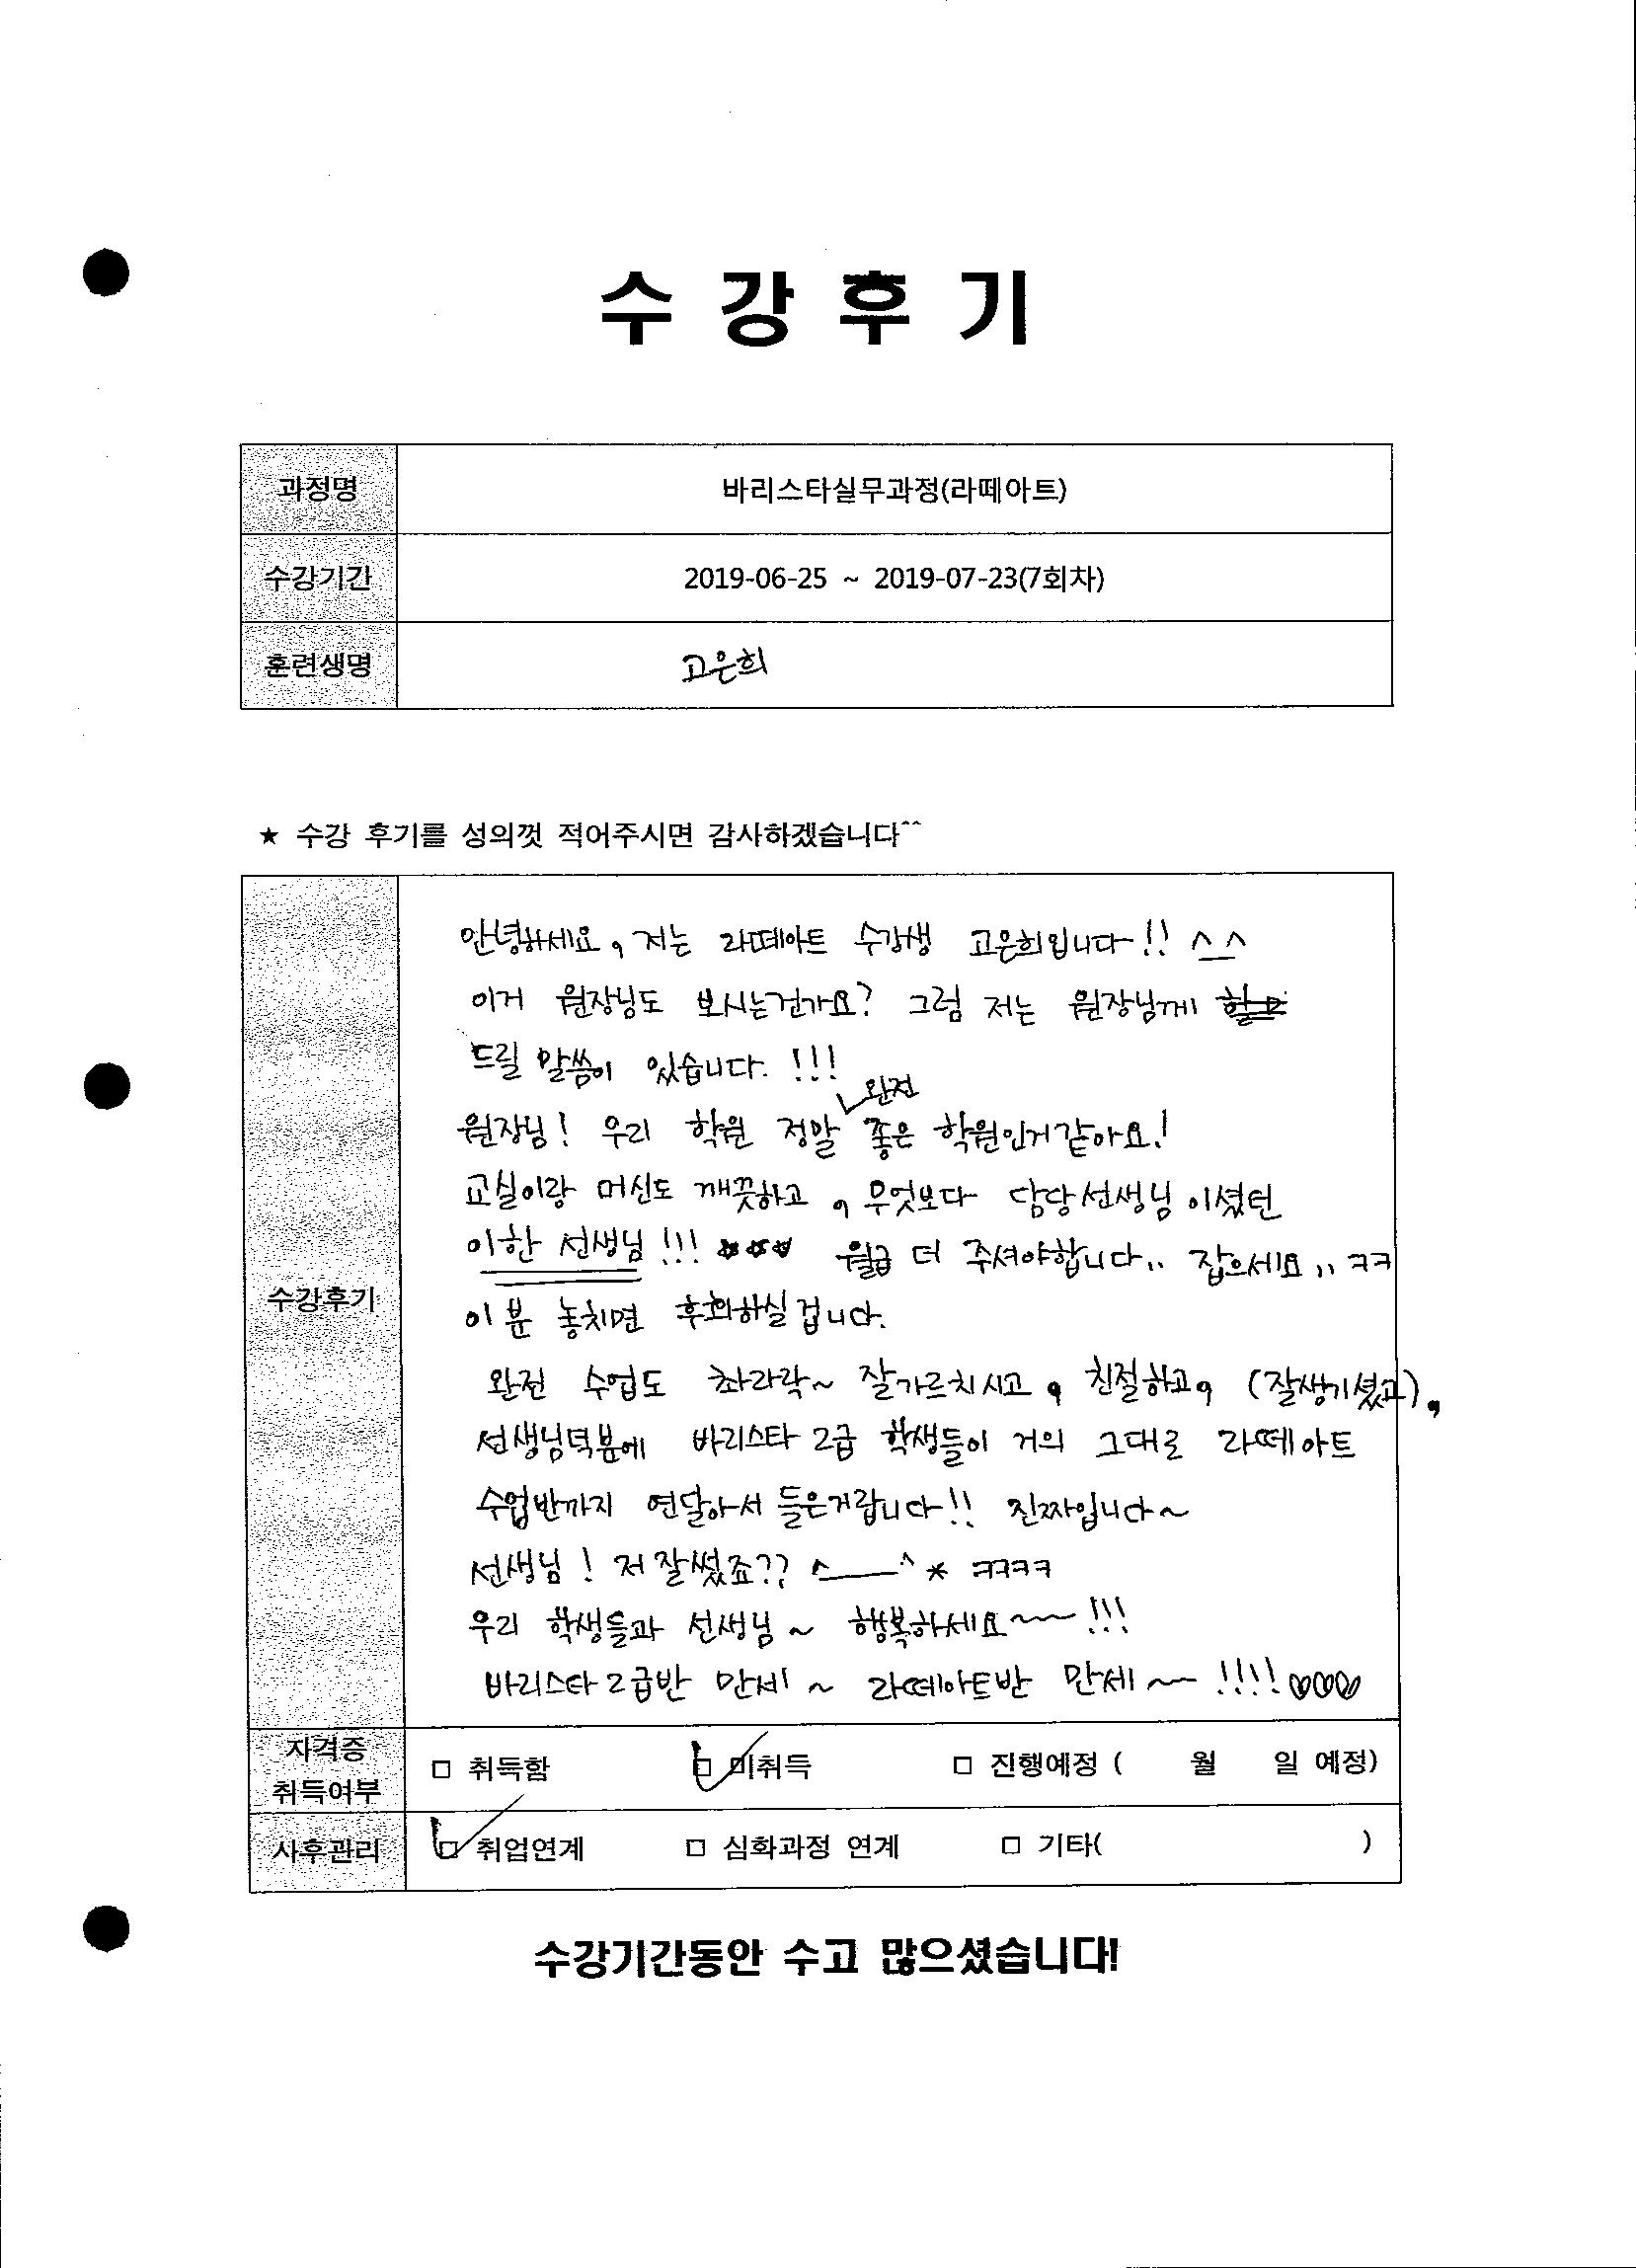 수강후기
과정명 바리스타실무과정(라떼아트)
수강기간 2019-06-25 ~ 2019-07-23(7회차)
훈련생명 고은희
★ 수강 후기를 성의껏 적어주시면 감사하겠습니다^^
안녕하세요, 저는 라떼아트 수강생 고은희입니다!! ^_^
이거 원장님도 보시는건가요? 그럼 저는 원장님께
드릴 말씀이 있습니다. !!!
완전
원장님! 우리 학원 정말 좋은 학원인거같아요!
교실이랑 머신도 깨끗하고, 무엇보다 담당선생님이셨던
이한 선생님!!! ☆☆☆ 월급 더 주셔야합니다.. 잡으세요,, ㅋㅋ
수강후기
이 분 놓치면 후회하실겁니다.
완전 수업도 촤라락~ 잘가르치시고, 친절하고, (잘생기셨고),
선생님덕분에 바리스타 2급 학생들이 거의 그대로 라떼아트
수업반까지 연달아서 들은거랍니다!! 진짜입니다~
선생님! 저 잘썼죠?? ^___^* ㅋㅋㅋㅋ
우리 학생들과 선생님~ 행복하세요~~ !!!
바리스타 2급반 만세~ 라떼아트반 만세~~ !!!!♡♡♡
자격증
취득여부
□ 취득함 ☑ 미취득 □ 진행예정 ( 월 일 예정)
사후관리 ☑ 취업연계 □ 심화과정 연계 □ 기타( )
수강기간동안 수고 많으셨습니다!